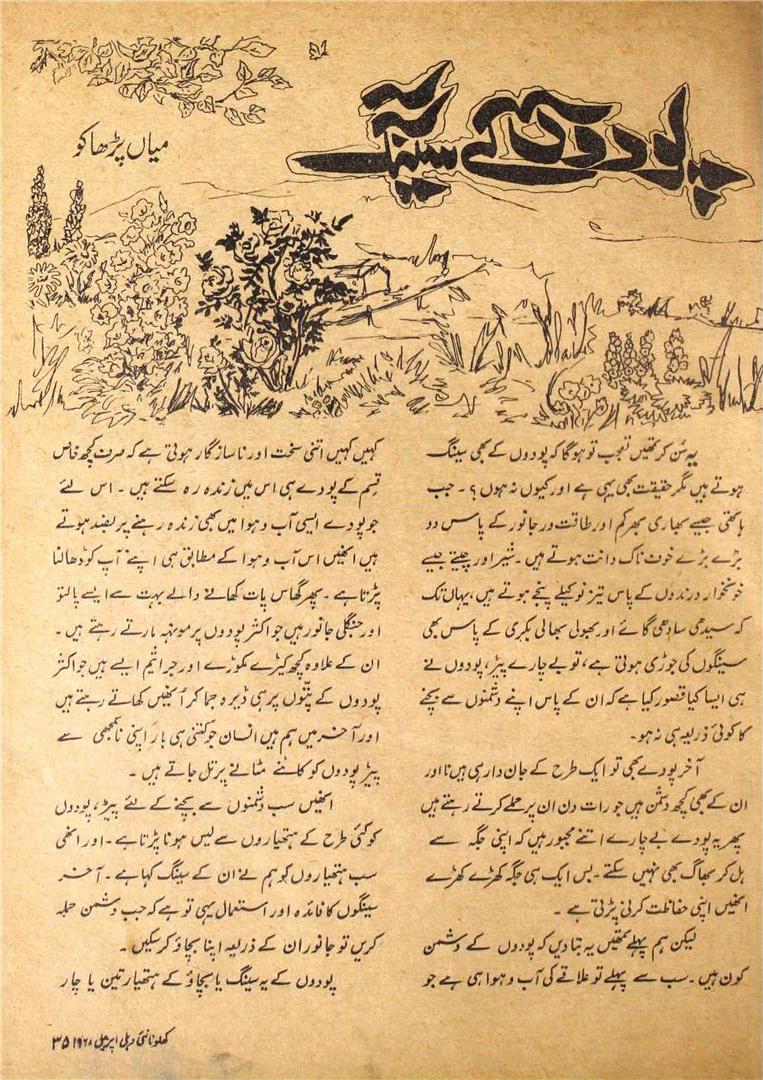 پودوں کے سینگ
میاں پڑھاکو
یہ سُن کر تمھیں تعجب تو ہوگا کہ پودوں کے بھی سینگ
ہوتے ہیں مگر حقیقت بھی یہی ہے اور کیوں نہ ہوں؟۔ جب
ہاتھی جیسے بھاری بھر کم اور طاقت ور جانور کے پاس دو
بڑے بڑے خوف ناک دانت ہوتے ہیں۔ شیر اور چیتے جیسے
خونخوار درندوں کے پاس تیز نوکیلے پنجے ہوتے ہیں، یہاں تک
کہ سیدھی سادھی گائے اور بھولی بھالی بکری کے پاس بھی
سینگوں کی جوڑی ہوتی ہے، تو بے چارے پیڑ، پودوں نے
ہی ایسا کیا قصور کیا ہے کہ ان کے پاس اپنے دشمنوں سے بچنے
کا کوئی ذریعہ ہی نہ ہو۔
آخر پودے بھی تو ایک طرح کے جان دار ہی ہیں نا اور
ان کے بھی کچھ دشمن ہیں جو رات دن ان پر حملے کرتے رہتے ہیں
پھر یہ پودے بے چارے اتنے مجبور ہیں کہ اپنی جگہ سے
ہل کر بھاگ بھی نہیں سکتے۔ بس ایک ہی جگہ کھڑے کھڑے
انھیں اپنی حفاظت کرنی پڑتی ہے۔
لیکن ہم پہلے تمھیں یہ بتا دیں کہ پودوں کے دشمن
کون ہیں۔ سب سے پہلے تو علاقے کی آب و ہوا ہی ہے جو
کہیں کہیں اتنی سخت اور ناسازگار ہوتی ہے کہ صرف کچھ خاص
قسم کے پودے ہی اس میں زندہ رہ سکتے ہیں۔ اس لئے
جو پودے ایسی آب و ہوا میں بھی زندہ رہنے پر بضد ہوتے
ہیں انھیں اس آب و ہوا کے مطابق ہی اپنے آپ کو ڈھالنا
پڑتا ہے۔ پھر گھاس پات کھانے والے بہت سے ایسے پالتو
اور جنگلی جانور ہیں جو اکثر پودوں پر مونہہ مارتے رہتے ہیں۔
ان کے علاوہ کچھ کیڑے مکوڑے اور جراثیم ایسے ہیں جو اکثر
پودوں کے پتّوں پر ہی ڈیرہ جما کر اُنھیں کھاتے رہتے ہیں
اور آخر میں ہم ہیں انسان جو کتنی ہی بار اپنی ناسمجھی سے
پیڑ پودوں کو کاٹنے مٹانے پر تل جاتے ہیں۔
انھیں سب دشمنوں سے بچنے کے لئے پیڑ، پودوں
کو کئی طرح کے ہتھیاروں سے لیس ہونا پڑتا ہے۔ اور انھی
سب ہتھیاروں کو ہم نے ان کے سینگ کہا ہے۔ آخر
سینگوں کا فائدہ اور استعمال یہی تو ہے کہ جب دشمن حملہ
کریں تو جانور ان کے ذریعہ اپنا بچاؤ کر سکیں۔
پودوں کے یہ سینگ یا بچاؤ کے ہتھیار تین یا چار
کھلونا نئی دہلی اپریل ۱۹۶۸ ۳۵